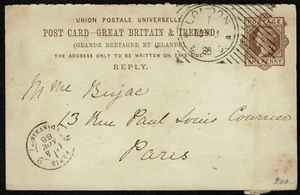 UNION POSTALE UNIVERSELLE
POST CARD–GREAT BRITAIN & IRELAND
(GRANDE BRETAGNE ET IRLANDE)
THE ADDRESS ONLY TO BE WRITTEN ON THIS SIDE
REPLY.
LONDON
88
POSTAGE
ONE PENNY
Mr Bujac
13 Rue Paul Louis Courier
Paris